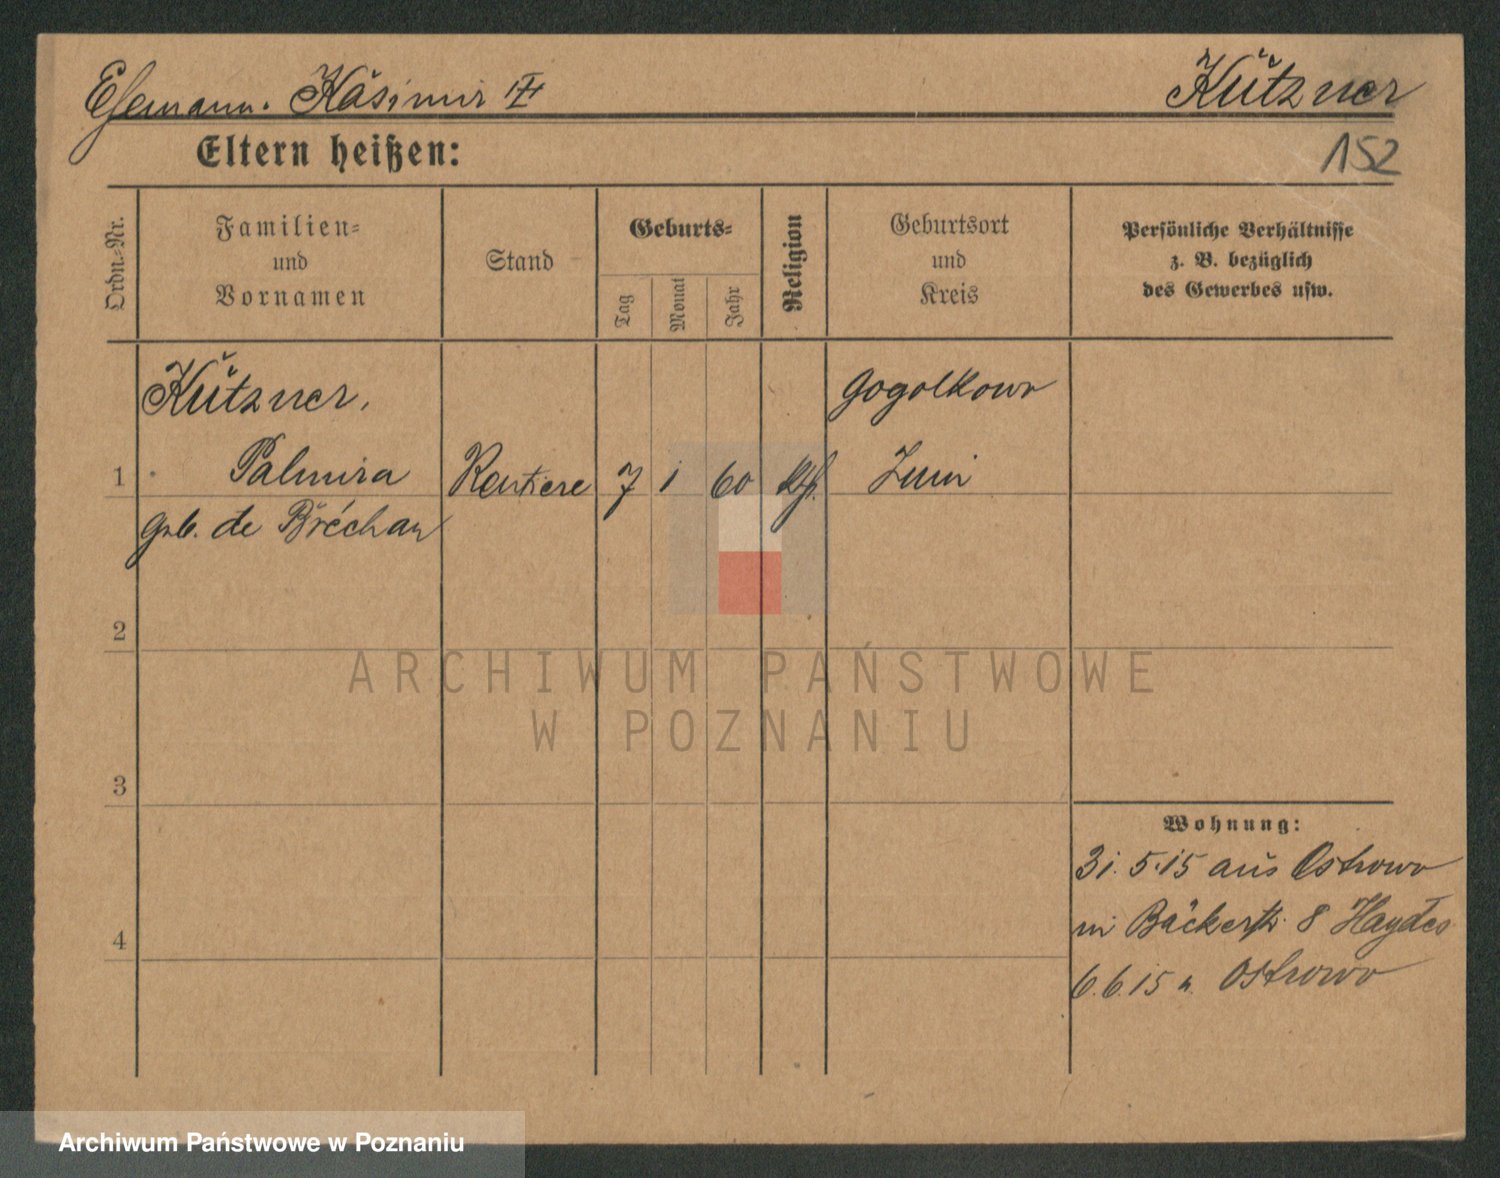 Ehemann. Kasimir ✠ Kützner
Eltern heißen: 152
Ordn.-Nr.
Familien=
und
Vornamen
Stand
Geburts=
Tag
Monat
Jahr
Religion
Geburtsort
und
Kreis
Persönliche Verhältnisse
z. B. bezüglich
des Gewerbes usw.
Kützner, Gogolkowo
1 Palmira Rentiere 7 1 60 kth. Znin
geb. de Bréchan
2
ARCHIWUM PAŃSTWOWE
W POZNANIU
3
Wohnung:
31.5.15 aus Ostrowo
in Bäckerstr. 8
4
6.6.15 n. Ostrowo
Archiwum Państwowe w Poznaniu